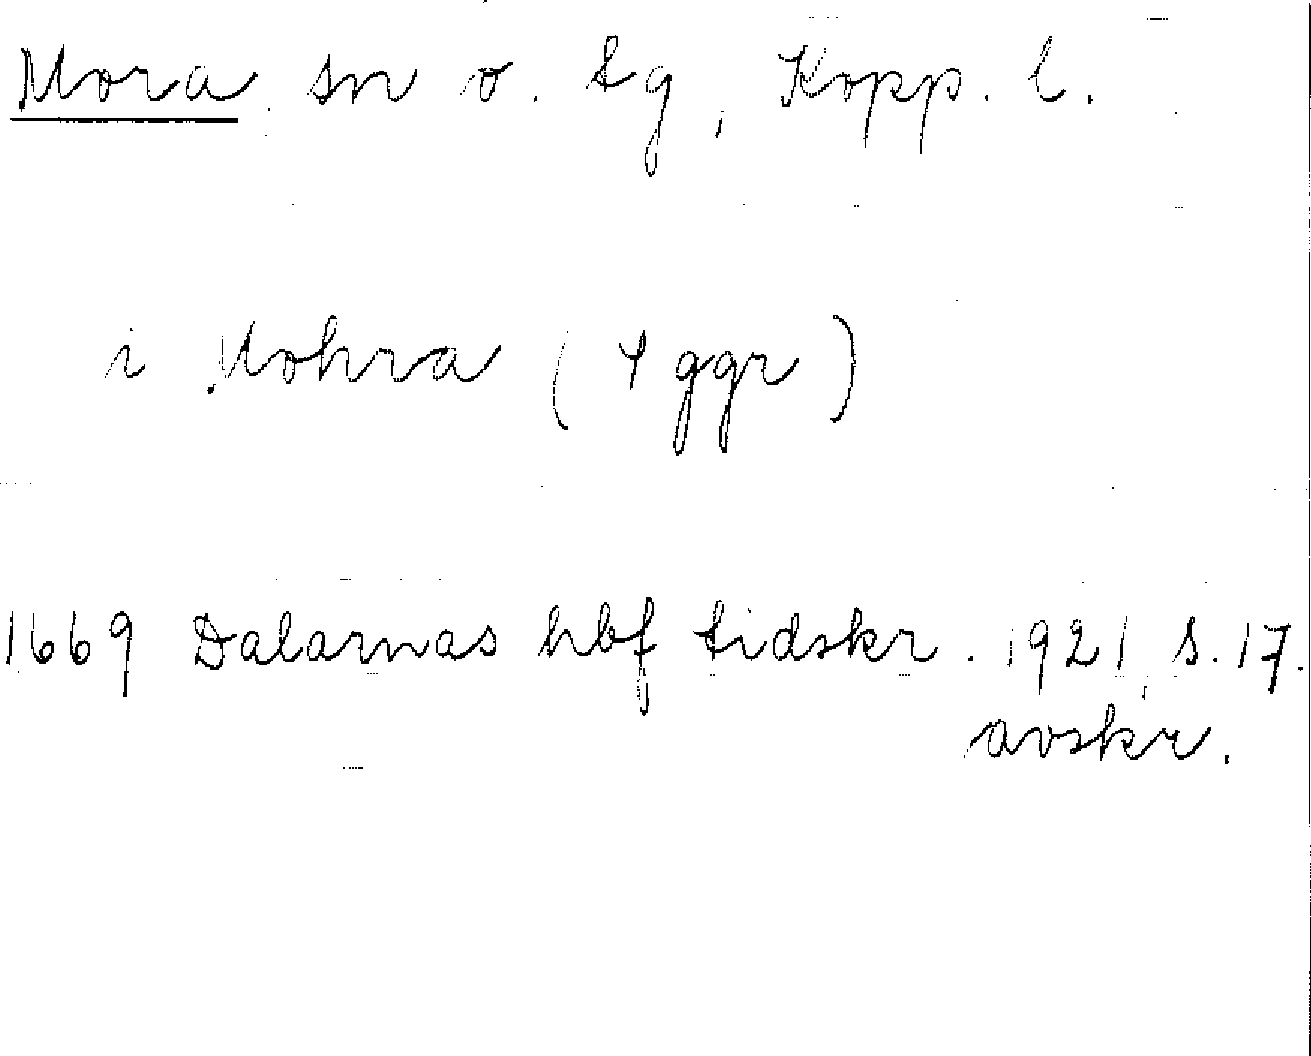 Mora sn o. tg, Kopp. l.
i Mohra (4 ggr)
1669 Dalarnas hbf tidskr. 1921, s. 17.
avskr.